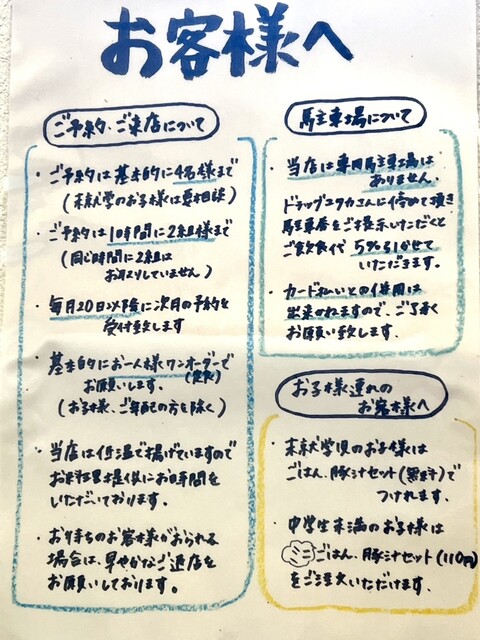 お客様へ
ご予約・ご来店について
・ご予約は基本的に4名様まで
(未就学のお子様は要相談)
・ご予約は1時間に2組様まで
(同じ時間に2組は
お取りしていません)
・毎月20日以降に次月の予約を
受付致します
・基本的にお一人様ワンオーダーで
お願いします。(定食)
(お子様、ご年配の方を除く)
・当店は低温で揚げていますので
お料理提供にお時間を
いただいております。
・お待ちのお客様がおられる
場合は、早やかなご退店を
お願いしております。
駐車場について
・当店は専用駐車場は
ありません。
ドラッグユタカさんに停めて頂き
駐車券をご提示いただくと
ご飲食代5%引かせて
いただきます。
・カード払いとの併用は
出来かねますので、ご了承
お願い致します。
お子様連れの
お客様へ
・未就学児のお子様は
ごはん、豚汁セット(無料)で
つけれます。
・中学生未満のお子様は
ミニごはん、豚汁セット(110円)
をご注文いただけます。